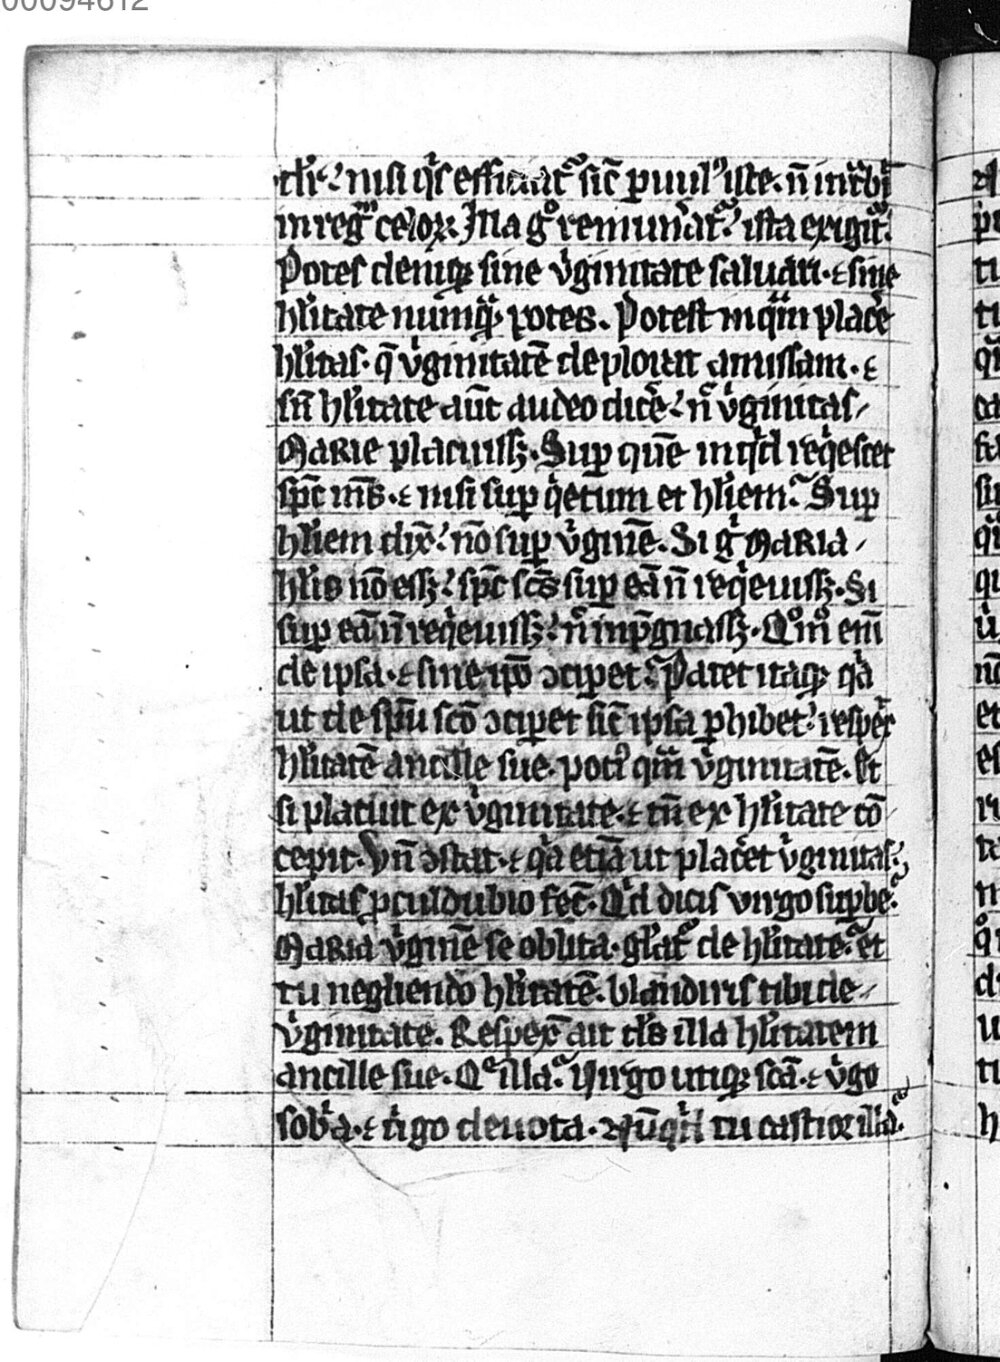 00094612
dr̄. nisi q̇s efficiat᷑ sic̄ puul᷒ iste. n̄ intᵃbit
in regᵐ̄ celoꝝ. Illa gͦ remunat᷑. ista exigit᷑.
Potes deniqꝫ sine v̇ginitate saluari. ⁊ sine
hūlitate numqᵃ̄ potes. Potest inqᵃ̄m plac̄e
hūlitas. q̄ v̇ginitatē deplorat amissam. ⁊
sn̄ hūlitate aūt audeo dic̄e. n̄ v̇ginitas
MARIE placuissꝫ. Sup̲ quē inq̇d reqͥescet
sp̄c mͤs. ⁊ nisi sup̲ qͥetum et hūlem. Sup̲
hūlem dix̄. nō sup̲ v̇ginē. Si gͥ MARIA
hūlis nō essꝫ. sp̄c sc̄s sup̲ eā n̄ reqͥeuissꝫ. Si
sup̲ eā n̄ reqͥeuissꝫ. n̄ inp̄gnassꝫ. Qͦmͦ eni̅
de ipsa. ⁊ sine ip̄o ↄcip̲et. Patet itaqꝫ qͥa
ut de sp̄u sc̄o ↄcip̲et sic̄ ipsa p̲hibet. resper̄
hūlitatē ancille sue. poti᷒ qᵃ̄m v̇ginitatē. Et
si placuit ex v̇ginitate. ⁊ tn̄ ex hūlitate cō
cepit. Vn̄ ↄstat. ⁊ qͥa etiā ut plac̄et v̇ginitas.
hūlitas p̲culdubio fec̄. Qͥd dicis virgo sup̲be.
MARIA v̇ginē se oblita. gl̄at᷑ de hūlitate. et
tu negliendo hūlitatē. blandiris tibi de
v̇ginitate. Respex̄ ait dn̄s illa hūlitatem
ancille sue. Qͤ illa. Virgo utiqꝫ scā. ⁊ v̇go
sobͥa. ⁊ v̇igo deuota. Nūqͥd tu castior illa.